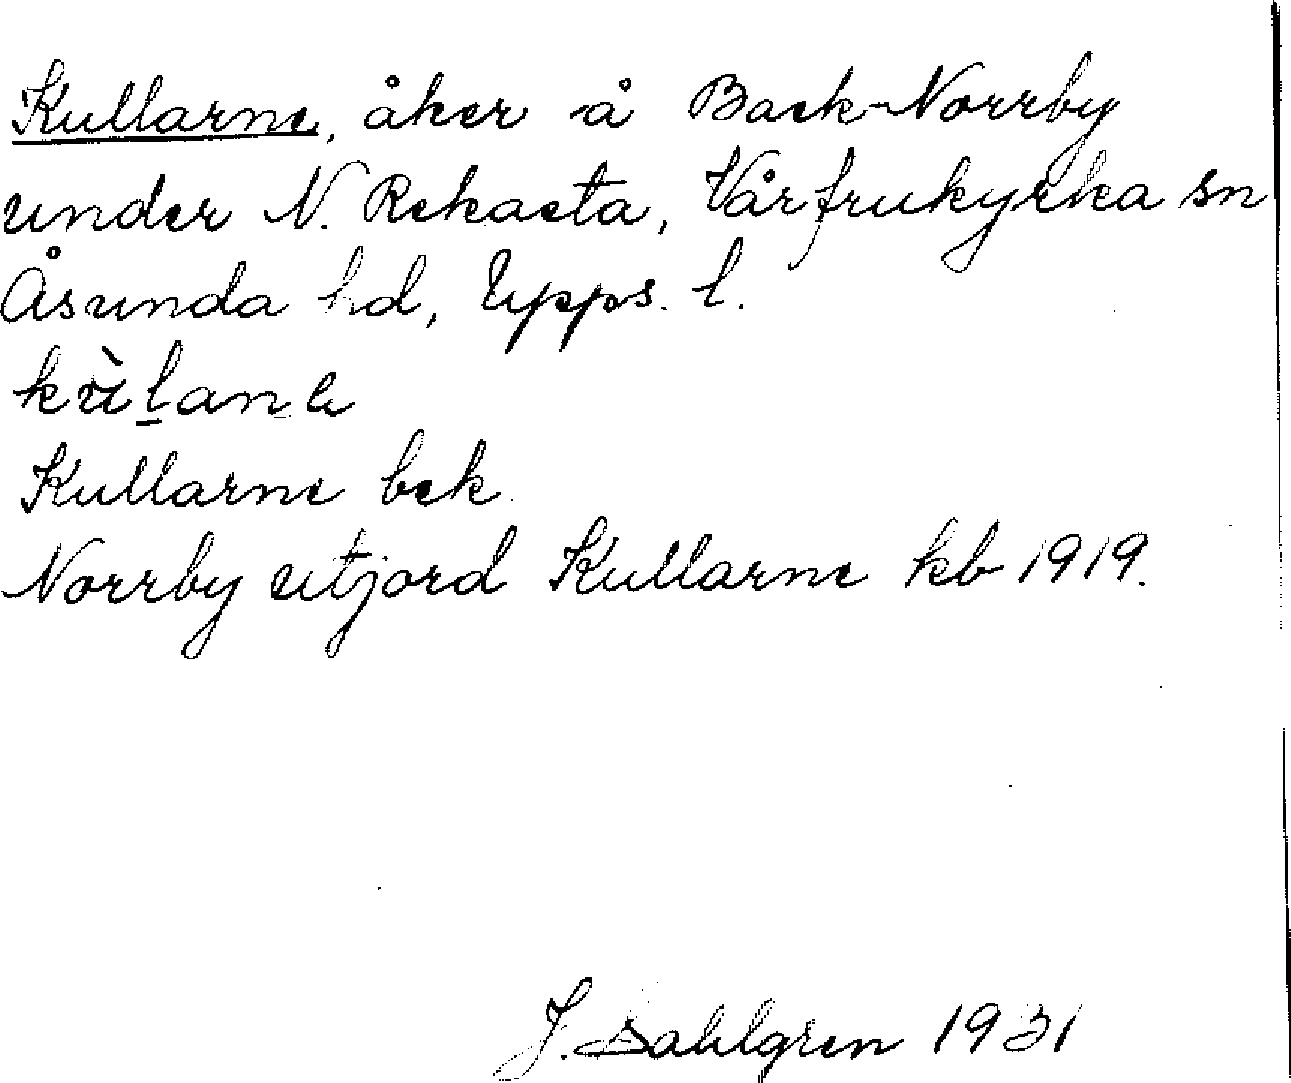 Kullarne, åker å Back-Norrby
under N. Rekasta, Vårfrukyrka sn
Åsunda hd, Upps. l.
Kullarne bek.
Norrby utjord Kullarne kb 1919.
J. Dahlgren 1931